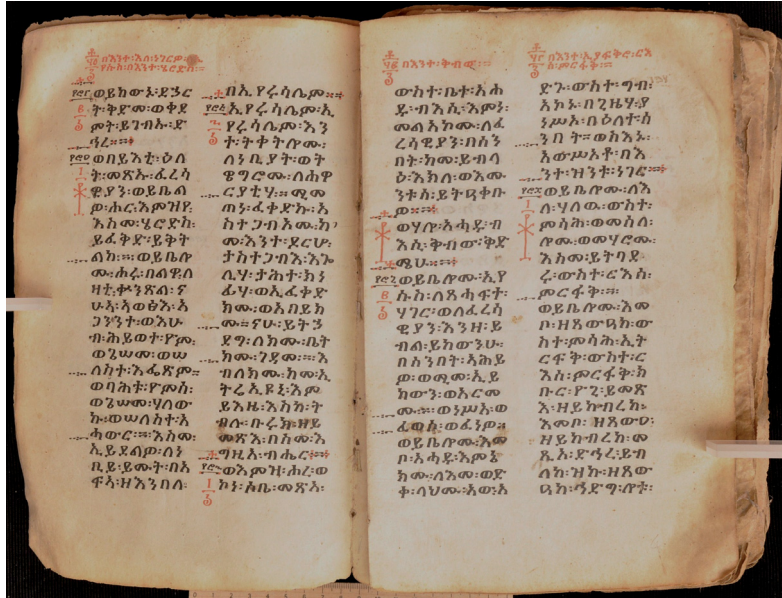 በእንተ፡እለ፡ነገርዎ፡
የሱስ፡በእንተ፡ሄሮድስ።
ወይከውኑ፡ደኃር
ት፡ቅድመ፡ወቀደ
ምት፡ይገብኡ፡ድ
ኅረ።
ወበይእቲ፡ዕለ
ት፡መጽኡ፡ፈሪሳ
ዊያን፡ወይቤል
ዎ፡ሑር፡እምዝየ፡
እስመ፡ሄሮድስ፡
ይፈቅድ፡ይቅት
ልከ።ወይቤሎ
ሙ፡ሑሩ፡በልዋ፡ለ
ዛቲ፡ቍንጽል፡ና
ሁ፡አወፅእ፡አ
ጋንንተ፡ወእሁ
ብ፡ሕይወተ፡ዮም፡
ወጌሠመ፡ወሠ
ለስተ፡እፌጽም።
ወባሕቱ፡ዮምሰ፡
ወጌሠመ፡ሃለው
ኩ፡ወሠለስተ፡አ
ሐውር።እስመ፡
ኢይደልዎ፡ለነ
ቢይ፡ይሙት፡በአ
ፍአ፡ዘእንበለ፡
በኢየሩሳሌም።
ኢየሩሳሌም፡ኢ
የሩሳሌም፡እን
ተ፡ትቀትሎሙ፡
ለነቢያት፡ወት
ዌግሮሙ፡ለሐዋ
ርያቲሃ።ሚመ
ጠነ፡ፈቀድኩ፡እ
ስተጋብእሙ፡ከ
መ፡እንተ፡ዶርሆ፡
ታስተጋብእ፡እጐ
ሊሃ፡ታሕተ፡ክነ
ፊሃ፡ወኢፈቀድ
ክሙ፡ወአበይክ
ሙ።ናሁ፡ይትኃ
ደግ፡ለክሙ፡ቤት
ክሙ፡ገዳመ።እ
ብለክሙ፡ከመ፡ኢ
ትሬእዩኒ፡እም
ይእዜ፡እስከ፡ት
ብሉ፡ቡሩክ፡ዘይ
መጽእ፡በስመ፡እ
ግዚአ፡ብሔር።
ወእምዝ፡ሐረ፡ወ
ኮነ፡ሶቤ፡መጽአ፡
በእንተ፡ቅብው።
ውስተ፡ቤተ፡አሐ
ዱ፡ብእሲ፡እምነ፡
መልአክሙ፡ለፈ
ሪሳዊያን፡በሰን
በት፡ከመ፡ይብላ
ዕ፡እክለ፡ወእሙ
ንቱሰ፡ይትዐቀቡ
ዎ።
ወሃሎ፡አሐዱ፡ብ
እሲ፡ቅብው፡ቅድ
ሜሁ።
ወይቤሎሙ፡ኢየ
ሱስ፡ለጸሐፍተ፡
ሃገር፡ወለፈሪሳ
ዊያን፡እንዘ፡ይ
ብል፡ይከውንሁ፡
በሰንበት፡አሕይ
ዎ፡ወሚመ፡ኢይ
ከውን፡ወአርመ
ሙ።ወነሥአ፡ወ
ፈወሶ፡ወፈነዎ።
ወይቤሎሙ፡እመ
ቦ፡አሐዱ፡እምኔ
ክሙ፡ለእመ፡ወድ
ቀ፡ላህሙ፡አው፡አ
በእንተ፡ኢያፍቅሮ፡ርእ
ሰ፡ምርፋቅ።
ድጉ፡ውስተ፡ግብ፡
አኮኑ፡በጊዜሃ፡ያ
ነሥኦ፡በዕለተ፡ሰ
ንበት።ወስእኑ፡
አውሥኦቶ፡በእ
ንተ፡ዝንቱ፡ነገር።
ወይቤሎሙ፡ለእ
ለ፡ሃለዉ፡ውስተ፡
ምሳሕ፡ወመሰለ፡
ሎሙ፡ወመሃሮሙ፡
እስመ፡ይትባደ
ሩ፡ውስተ፡ርእሰ፡
ምርፋቅ።
ወይቤሎሙ፡እመ
ቦ፡ዘጸውዐክ፡ው
ስተ፡ምሳሕ፡ኢት
ርፋቅ፡ውስተ፡ር
እሰ፡ምርፋቅ፡ክ
ቡር፡ዮጊ፡ይመጽ
እ፡ዘይከብረከ፡
እመቦ፡ዘጸውዑ፡
ዘይከብረከ፡መ
ጺኦ፡ድኅረ፡ይብ
ለከ፡ዝኩ፡ዘጸው
ዐከ፡ኅድግ፡ሎቱ፡